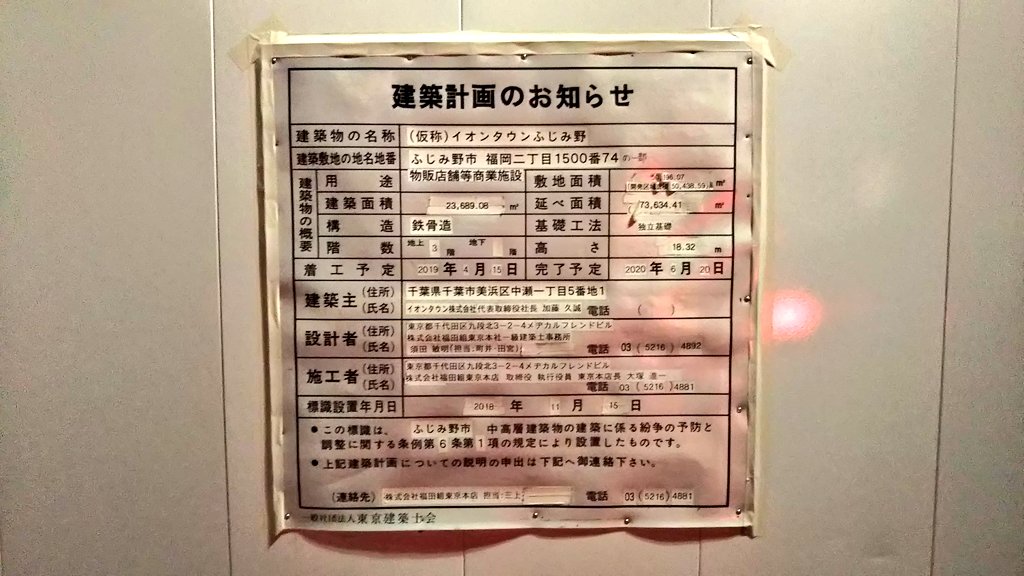 建築計画のお知らせ
建築物の名称 (仮称)イオンタウンふじみ野
建築敷地の地名地番 ふじみ野市 福岡二丁目1500番74の一部
建築物の概要
用途 物販店舗等商業施設 敷地面積 (開発区域面積 50,438.59)㎡
建築面積 23,689.08 ㎡ 延べ面積 73,634.41 ㎡
構造 鉄骨造 基礎工法 独立基礎
階数 地上 3 階 地下 階 高さ 18.32 m
着工予定 2019 年 4 月 15 日 完了予定 2020 年 6 月 20 日
建築主 (住所) 千葉県千葉市美浜区中瀬一丁目5番地1
(氏名) イオンタウン株式会社 代表取締役社長 加藤 久誠 電話 ( )
設計者 (住所) 東京都千代田区九段北3-2-4メヂカルフレンドビル
(氏名) 株式会社福田組東京本社一級建築士事務所
須田 敏明(担当:町井・田宮) 電話 03 (5216) 4892
施工者 (住所) 東京都千代田区九段北3-2-4メヂカルフレンドビル
(氏名) 株式会社福田組東京本店 取締役 執行役員 東京本店長 大塚 進一
電話 03 (5216) 4881
標識設置年月日 2018 年 11 月 15 日
●この標識は、 ふじみ野市 中高層建築物の建築に係る紛争の予防と
調整に関する条例第6条第1項の規定により設置したものです。
●上記建築計画についての説明の申出は下記へ御連絡下さい。
(連絡先) 株式会社福田組東京本店 担当:三上 電話 03 (5216) 4881
一般社団法人東京建築士会